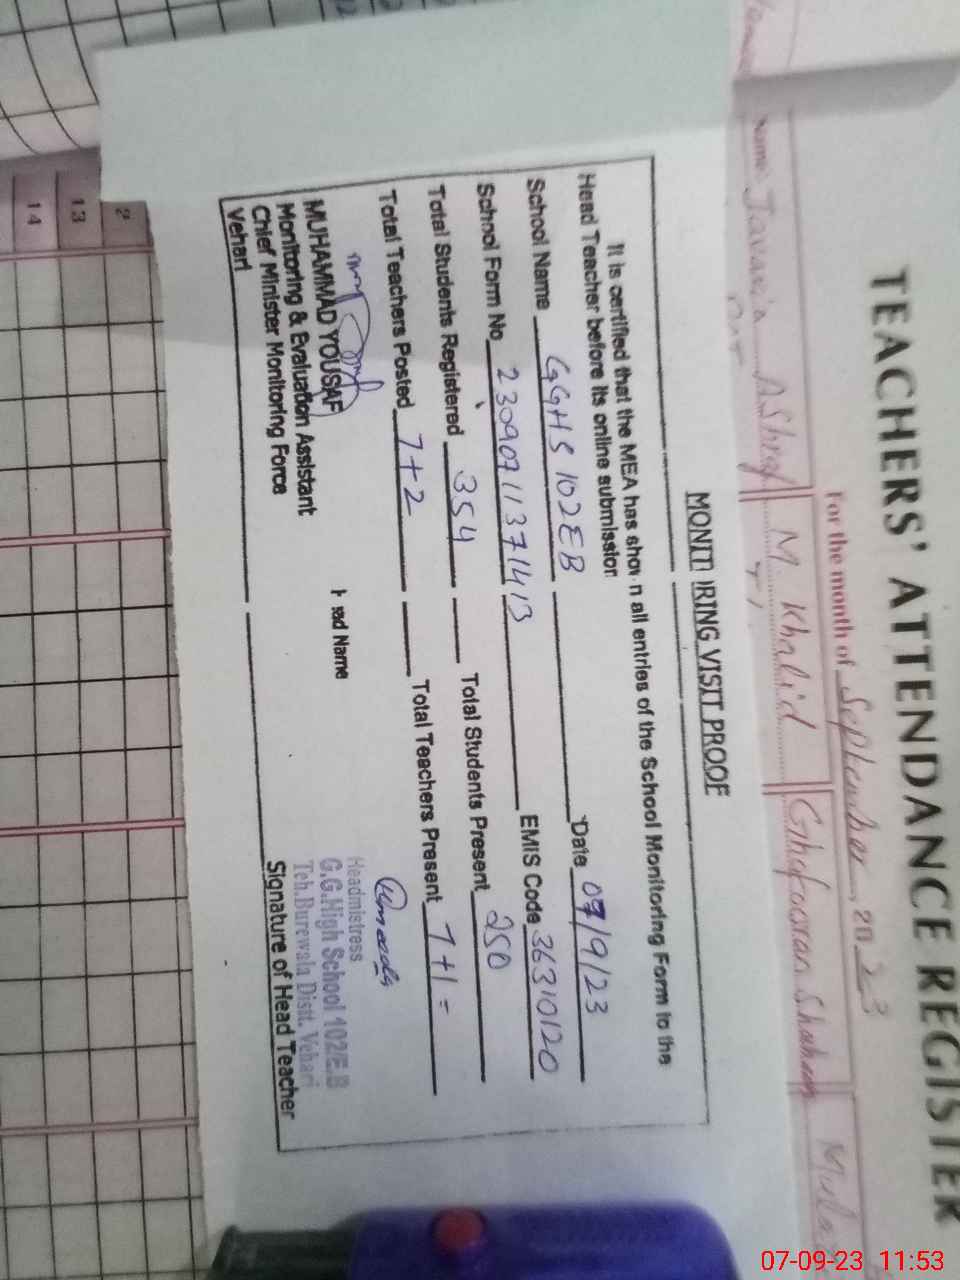 TEACHERS' ATTENDANCE REGISTER
For the month of September, 20 23
Name Javaria Ashraf M. Khalid
MONIT RING VISIT PROOF
It is certified that the MEA has shown all entries of the School Monitoring Form to the
Head Teacher before its online submission
School Name GGHS 102EB Date 07/9/23
School Form No 23090711371413 EMIS Code 36310120
Total Students Registered 354 Total Students Present 250
Total Teachers Posted 7+2 Total Teachers Present 7+1=
MUHAMMAD YOUSAF
Monitoring & Evaluation Assistant
Chief Minister Monitoring Force
Vehari
ead Name
Headmistress
G.G.High School 102/E.B
Teh.Burewala Distt. Vehari
Signature of Head Teacher
2
13
14
07-09-23 11:53